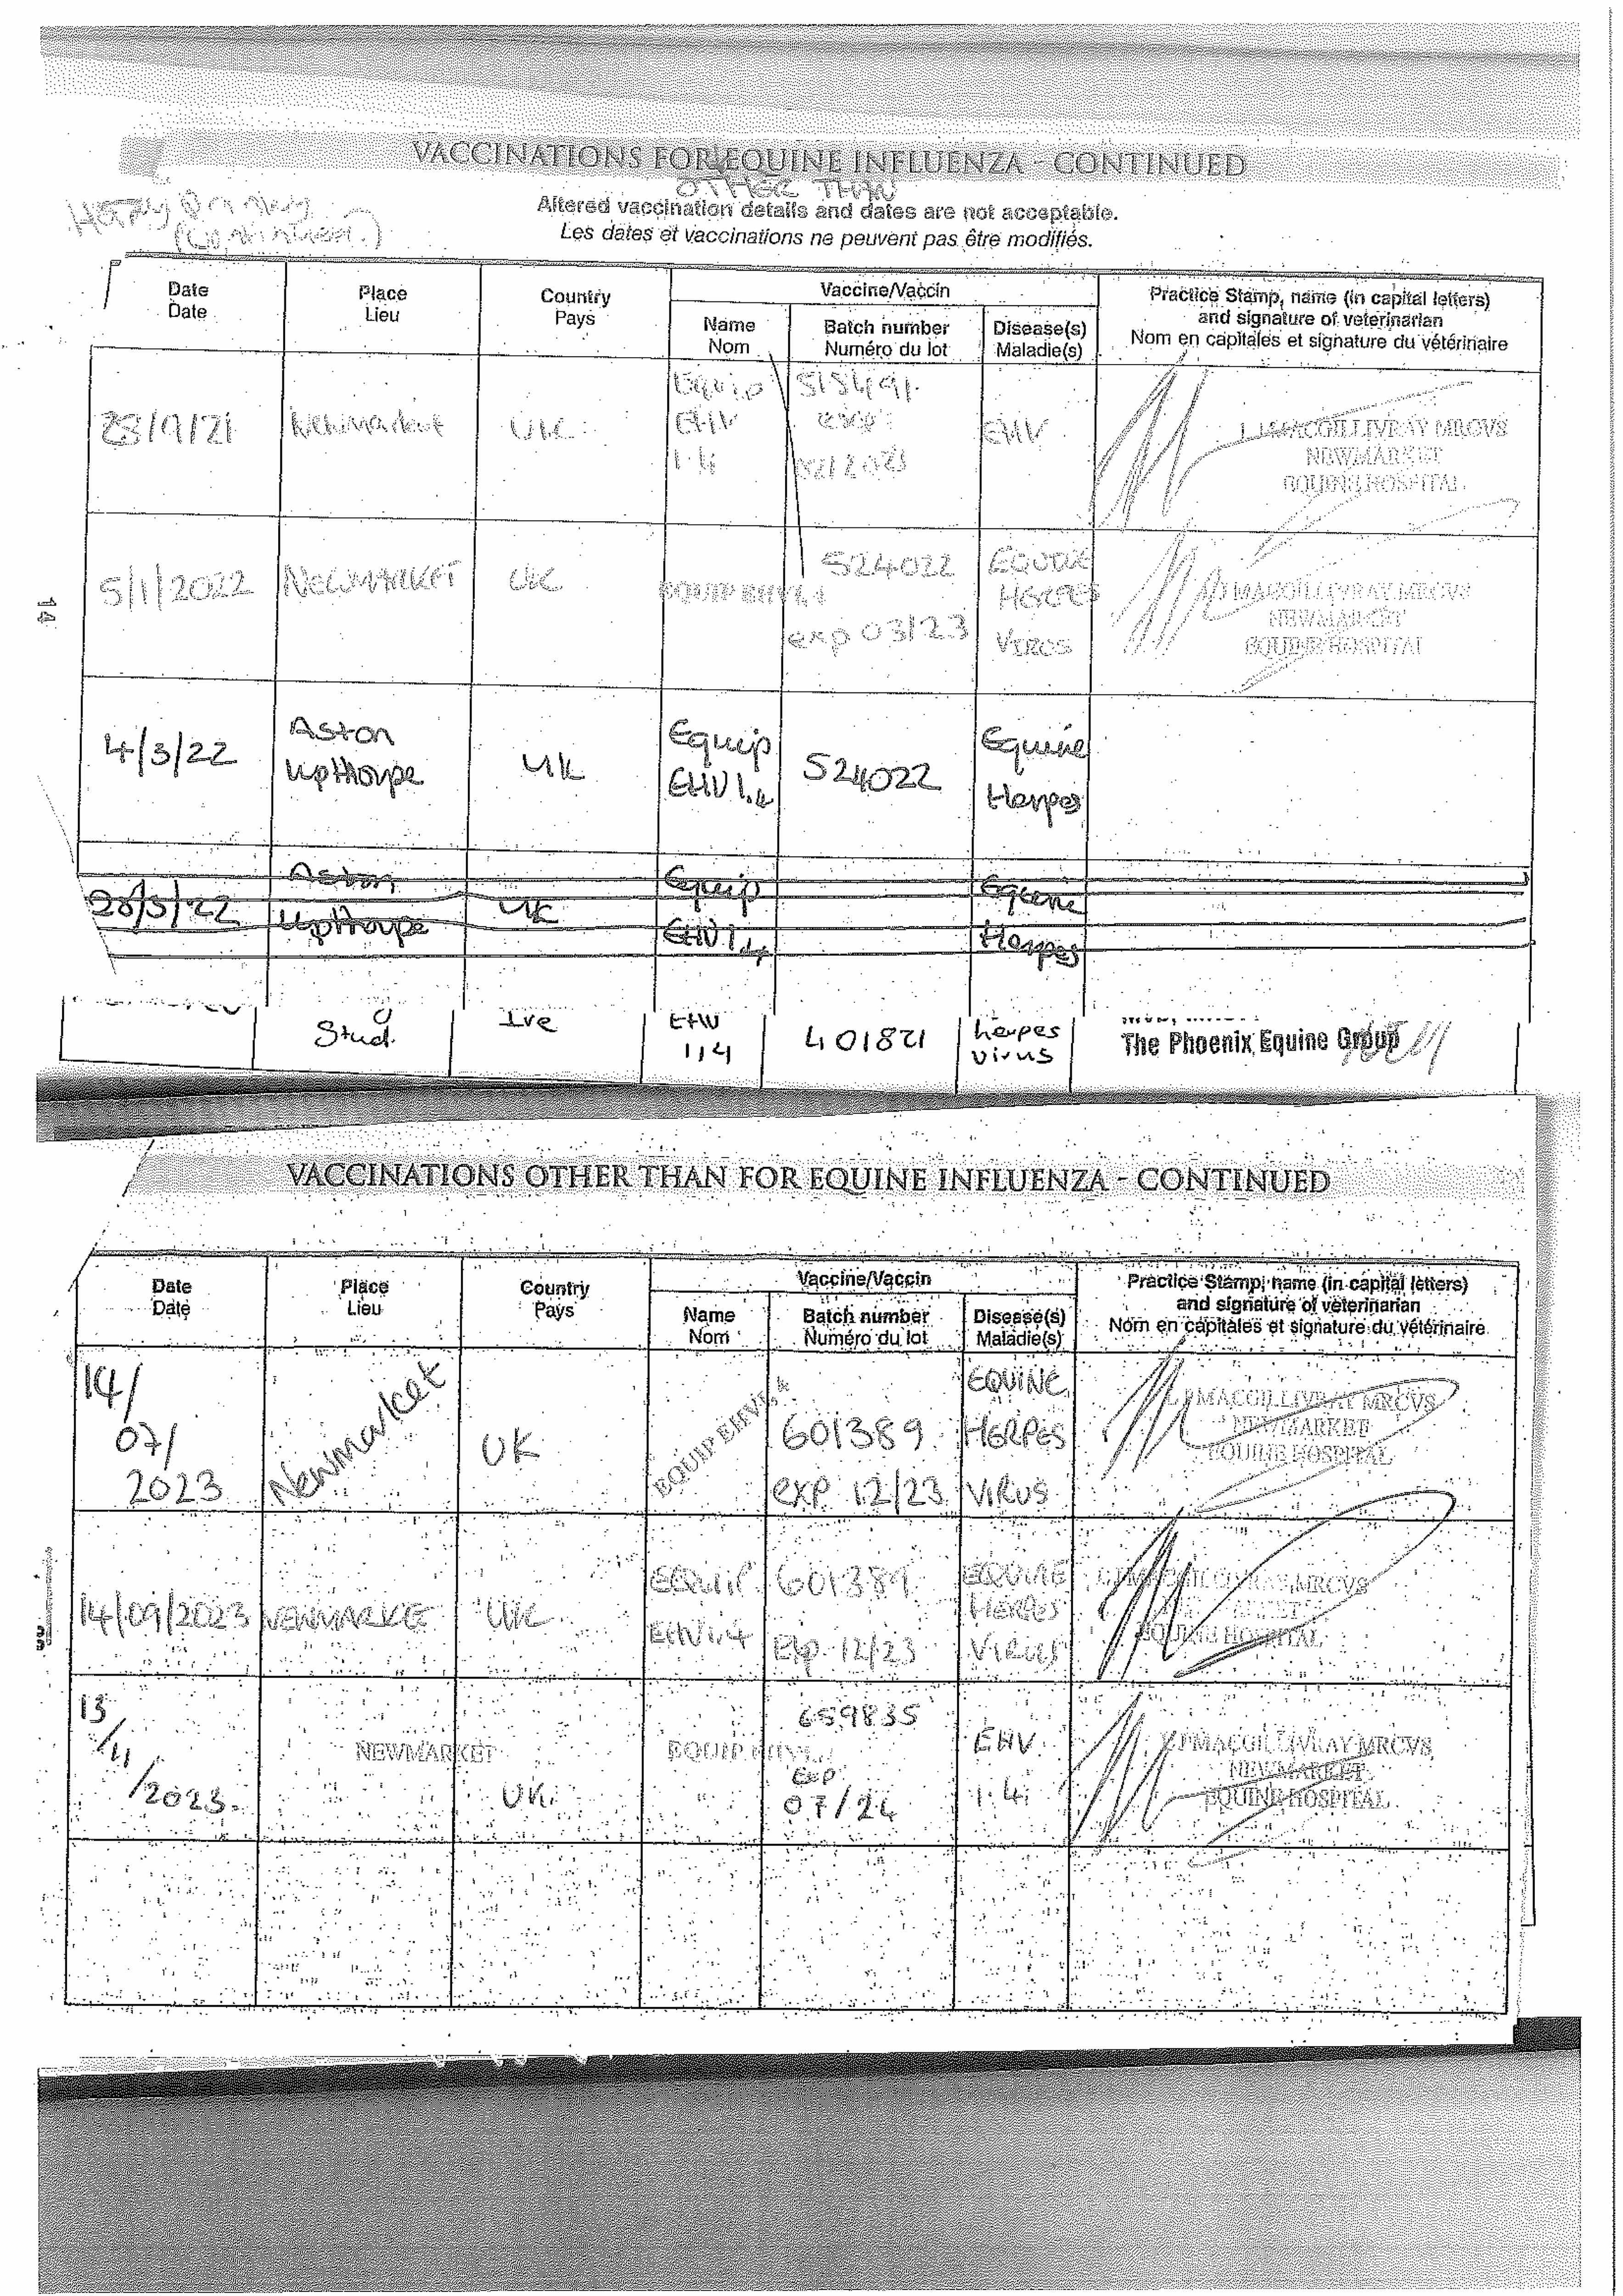 VACCINATIONS FOR EQUINE INFLUENZA - CONTINUED
OTHER THAN
Altered vaccination details and dates are not acceptable.
Les dates et vaccinations ne peuvent pas être modifiés.
Date
Date
Place
Lieu
Country
Pays
Vaccine/Vaccin
Name
Nom
Batch number
Numéro du lot
Disease(s)
Maladie(s)
Practice Stamp, name (in capital letters)
and signature of veterinarian
Nom en capitales et signature du vétérinaire
Newmarket
UK
Equip
EHV
1.4
EHV
MACGILLIVRAY MRCVS
NEWMARKET
EQUINE HOSPITAL
14
5/1/2022
NEWMARKET
UK
EQUIP EHV1,4
524022
exp 03/23
EQUINE
HERPES
VIRUS
MACGILLIVRAY MRCVS
NEWMARKET
EQUINE HOSPITAL
4/3/22
Aston
Upthorpe
UK
Equip
EHV1,4
524022
Equine
Herpes
Aston
Upthorpe
UK
Equip
EHV1,4
Equine
Herpes
Stud.
Ire
EHV
1,4
401821
herpes
virus
The Phoenix Equine Group
VACCINATIONS OTHER THAN FOR EQUINE INFLUENZA - CONTINUED
Date
Date
Place
Lieu
Country
Pays
Vaccine/Vaccin
Name
Nom
Batch number
Numéro du lot
Disease(s)
Maladie(s)
Practice Stamp, name (in capital letters)
and signature of veterinarian
Nom en capitales et signature du vétérinaire
14/
07/
2023
Newmarket
UK
EQUIP EHV1,4
601389
exp 12/23
EQUINE
HERPES
VIRUS
MACGILLIVRAY MRCVS
NEWMARKET
EQUINE HOSPITAL
14/09/2023
NEWMARKE
UK
EQUIP
EHV1,4
601389
Exp 12/23
EQUINE
HERPES
VIRUS
MRCVS
EQUINE HOSPITAL
13
/11
/2023
NEWMARKET
UK
659835
Exp
07/24
EHV
1.4
MACGILLIVRAY MRCVS
NEWMARKET
EQUINE HOSPITAL